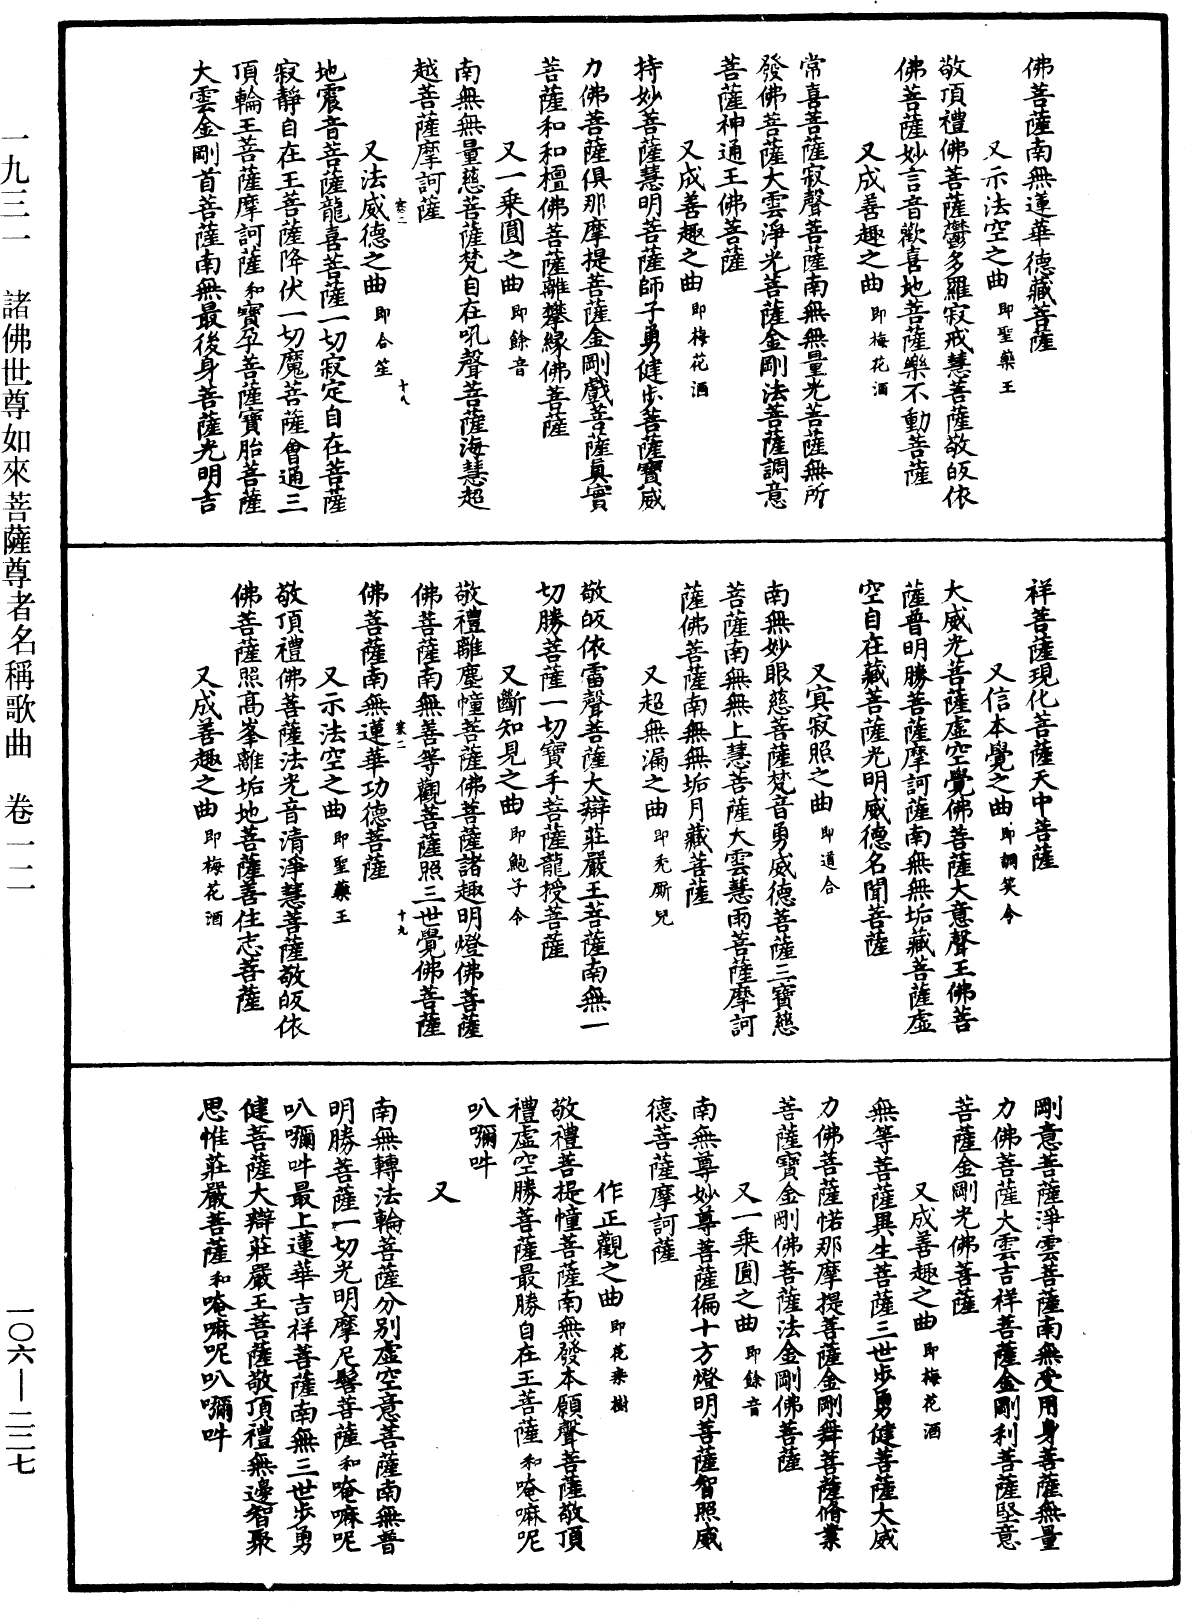 佛菩薩南無蓮華德藏菩薩
又示法空之曲 即聖藥王
敬頂禮佛菩薩鬱多羅寂戒慧菩薩敬皈依
佛菩薩妙言音歡喜地菩薩樂不動菩薩
又成善趣之曲 即梅花酒
常喜菩薩寂聲菩薩南無無量光菩薩無所
發佛菩薩大雲淨光菩薩金剛法菩薩調意
菩薩神通王佛菩薩
又成善趣之曲 即梅花酒
持妙菩薩慧明菩薩師子勇健步菩薩寶威
力佛菩薩俱那摩提菩薩金剛戲菩薩真實
菩薩和和檀佛菩薩離攀緣佛菩薩
又一乘圓之曲 即餘音
南無無量慈菩薩梵自在吼聲菩薩海慧超
越菩薩摩訶薩
又法威德之曲 即合笙
十八
地震音菩薩龍喜菩薩一切寂定自在菩薩
寂靜自在王菩薩降伏一切魔菩薩會通三
頂輪王菩薩摩訶薩和寶孕菩薩寶胎菩薩
大雲金剛首菩薩南無最後身菩薩光明吉
祥菩薩現化菩薩天中菩薩
又信本覺之曲 即調笑令
大威光菩薩虛空覺佛菩薩大意聲王佛菩
薩普明勝菩薩摩訶薩南無無垢藏菩薩虛
空自在藏菩薩光明威德名聞菩薩
又寘寂照之曲 即道合
南無妙眼慈菩薩梵音勇威德菩薩三寶慈
菩薩南無無上慧菩薩大雲慧雨菩薩摩訶
薩佛菩薩南無無垢月藏菩薩
又超無漏之曲 即禿廝兒
敬皈依雷聲菩薩大辯莊嚴王菩薩南無一
切勝菩薩一切寶手菩薩龍授菩薩
又斷知見之曲 即鮑子令
敬禮離塵幢菩薩佛菩薩諸趣明燈佛菩薩
佛菩薩南無善等觀菩薩照三世覺佛菩薩
十九
佛菩薩南無蓮華功德菩薩
又示法空之曲 即聖藥王
敬頂禮佛菩薩法光音清淨慧菩薩敬皈依
佛菩薩照高峯離垢地菩薩善住志菩薩
又成善趣之曲 即梅花酒
剛意菩薩淨雲菩薩南無受用身菩薩無量
力佛菩薩大雲吉祥菩薩金剛利菩薩堅意
菩薩金剛光佛菩薩
又成善趣之曲 即梅花酒
無等菩薩異生菩薩三世步勇健菩薩大威
力佛菩薩惹那摩提菩薩金剛舞菩薩脩業
菩薩寶金剛佛菩薩法金剛佛菩薩
又一乘圓之曲 即餘音
南無尊妙尊菩薩徧十方燈明菩薩智照威
德菩薩摩訶薩
作正觀之曲 即花朵樹
敬禮菩提幢菩薩南無發本願聲菩薩敬頂
禮虛空勝菩薩最勝自在王菩薩和唵嘛呢
叭嚩吽
又
南無轉法輪菩薩分別虛空意菩薩南無普
明勝菩薩一切光明摩尼髻菩薩和唵嘛呢
叭嚩吽最上蓮華吉祥菩薩南無三世步勇
健菩薩大辯莊嚴王菩薩敬頂禮無邊智聚
思惟莊嚴菩薩和唵嘛呢叭嚩吽
一九三一 諸佛世尊如來菩薩尊者名稱歌曲 卷一二
一〇六—二二七